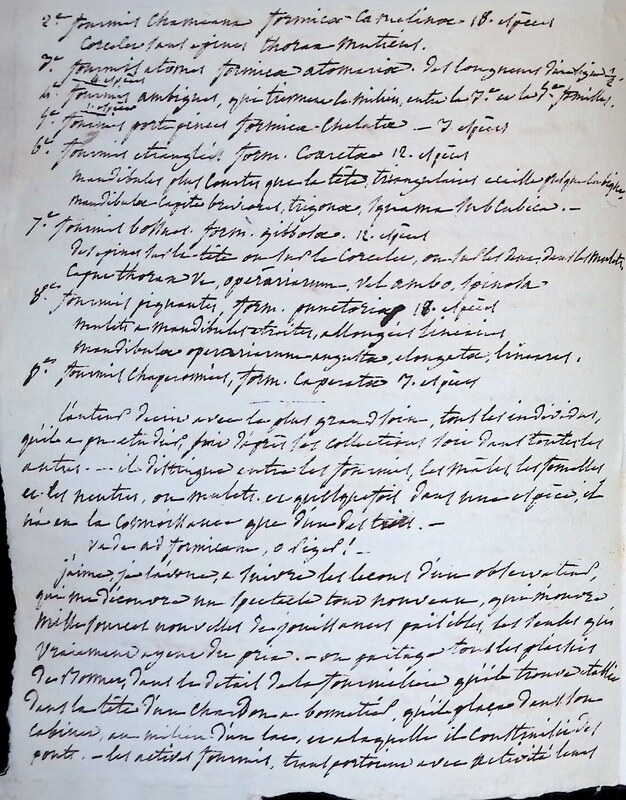 2e fourmis Chameaux formicæ Camelinæ 18. espèces
Corcelet sans epines thorax muticus.
3e fourmis atomes formicæ atomariæ. des longueurs d'une ligne 1/2.
4 espèces
4e fourmis ambigues, qui tiennent le milieu, entre la 3e et la 5e familles.
1. espèce
5e fourmis portepinces formicæ Chelatæ — 3 espèces
6e fourmis etranglées form. Coarctæ 12. espèces
mandibules plus Courtes que la tête, triangulaires ecaille presque Cubique
mandibulæ Capite breviores, trigonæ, squama SubCubica. —
7e fourmis bossues form. gibbosæ. 12. espèces
des epines sur la tête ou sur le Corcelet, ou sur les deux dans les Mulets,
Caput thorax ve, operariarum, vel ambo, spinosa
8e fourmis piquantes, form. punctoriæ 18. espèces
mulets a mandibules etroites, allongées lineaires
mandibulæ operariarum angustæ, elongatæ, lineares.
9e fourmis Chaperonnées, form. Caperatæ 3. espèces
l'auteur decrit avec le plus grand soin, tous les individus,
qu'il a pu etudier, soit d'après ses collections soit dans toutes les
autres — il distingue entre les fourmis, les mâles les femelles
et les neutres, ou mulets. et quelquefois dans une espèce, il
n'a eu la Connoissance que d'un des trois. —
vade ad formicam, o piger! —
j'aime, je l'avoue, a suivre les lecons d'un observateur,
qui me découvre un spectacle tout nouveau, qui m'ouvre
mille sources nouvelles de jouissances paisibles, les seules qui
vraiement ayent du prix. — on partage tous les plaisirs
de Bonnet, dans le detail de la fourmiliere qu'il trouve etablie
dans la tête d'un chardon a bonnetier, qu'il place dans son
Cabinet, au milieu d'un lac, et a laquelle il construit des
ponts. — les actives fourmis, transportent avec activité leurs